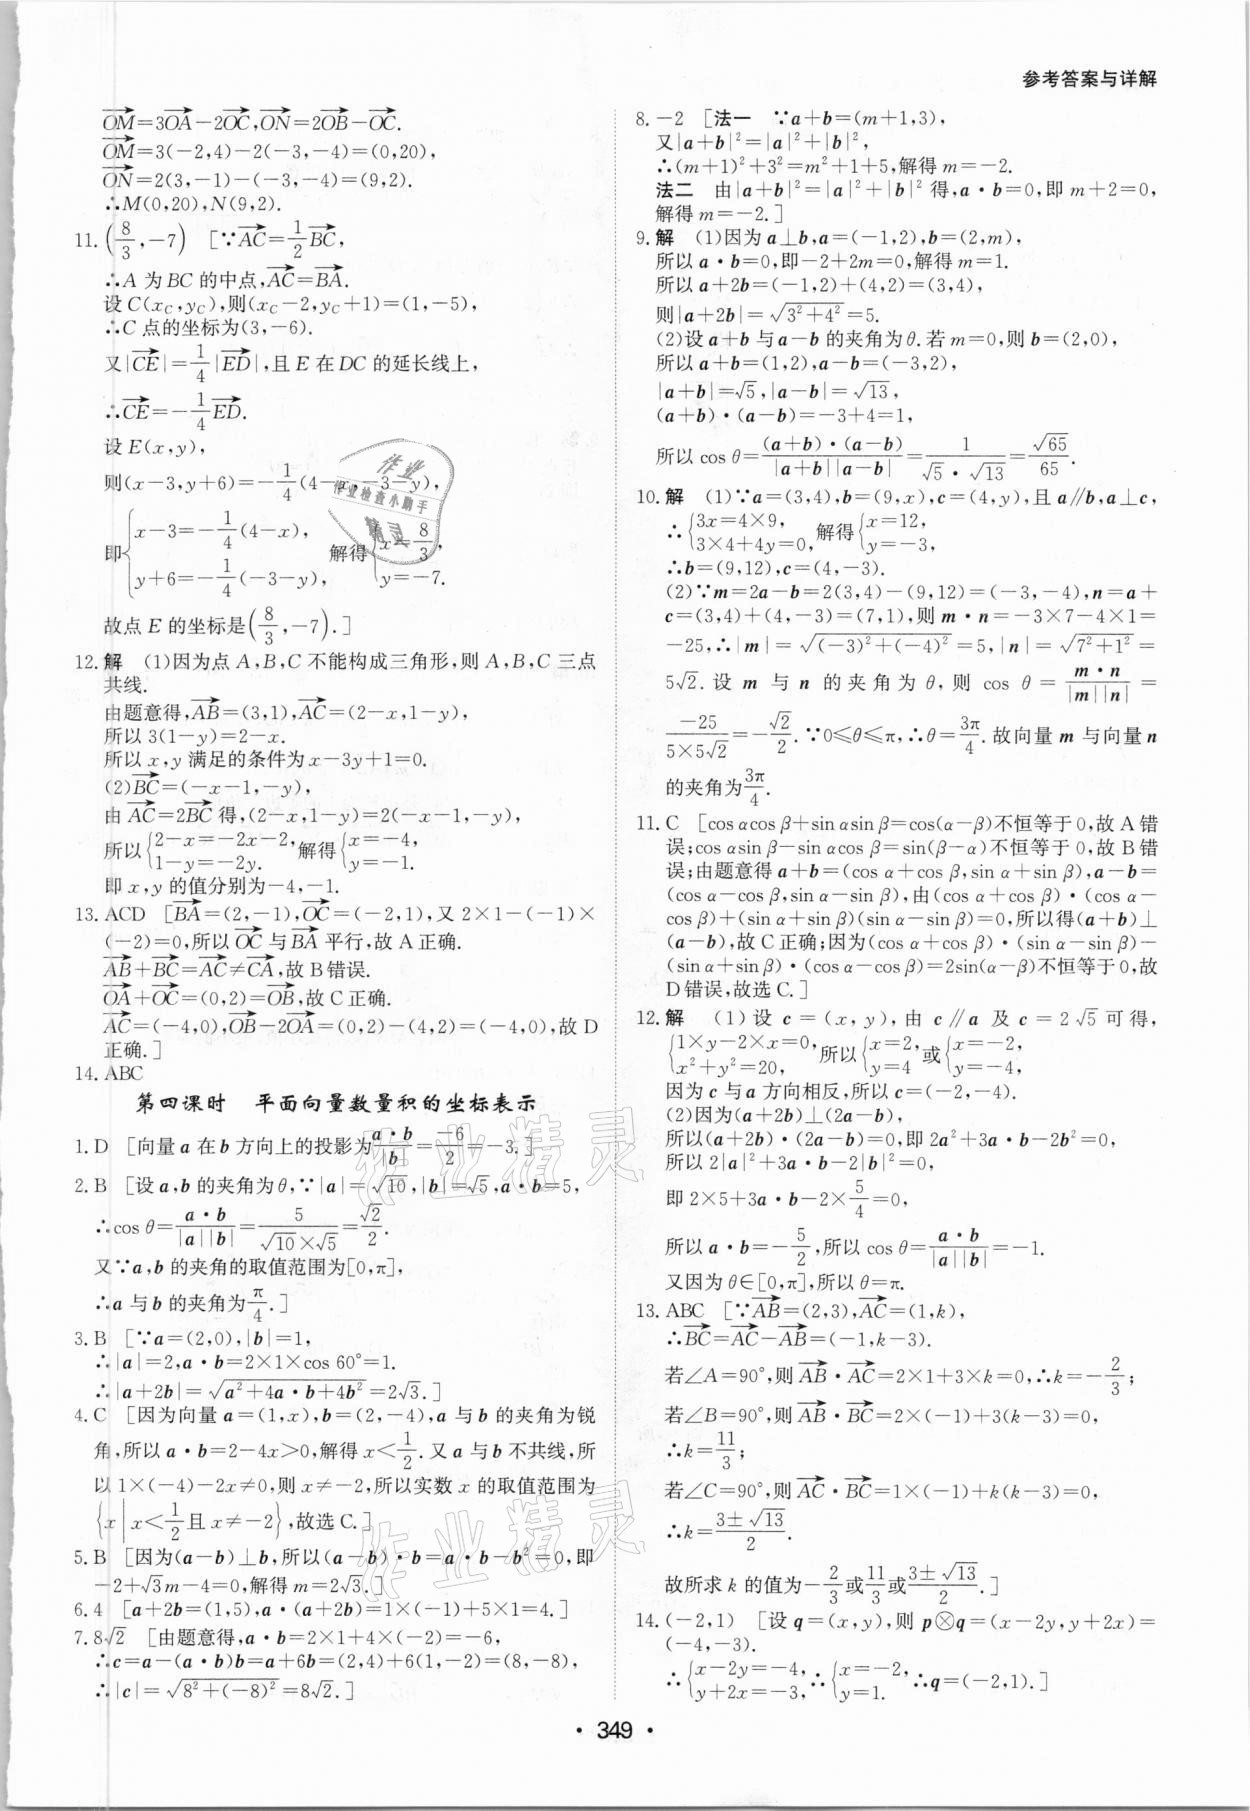 参考答案与详解
OM=3OA-2OC,ON=2OB-OC.
OM=3(-2,4)-2(-3,-4)=(0,20),
ON=2(3,-1)-(-3,-4)=(9,2).
∴M(0,20),N(9,2).
11.(8/3,-7) [∵AC=1/2BC,
∴A 为 BC 的中点,AC=BA.
设 C(x_C,y_C),则(x_C-2,y_C+1)=(1,-5),
∴C 点的坐标为(3,-6).
又|CE|=1/4|ED|,且 E 在 DC 的延长线上,
∴CE=-1/4ED.
设 E(x,y),
则(x-3,y+6)=-1/4(4-x,-3-y),
即{x-3=-1/4(4-x), y+6=-1/4(-3-y), 解得{x=8/3, y=-7.
故点 E 的坐标是(8/3,-7).]
12.解 (1)因为点 A,B,C 不能构成三角形,则 A,B,C 三点
共线.
由题意得,AB=(3,1),AC=(2-x,1-y),
所以 3(1-y)=2-x.
所以 x,y 满足的条件为 x-3y+1=0.
(2)BC=(-x-1,-y),
由 AC=2BC 得,(2-x,1-y)=2(-x-1,-y),
所以{2-x=-2x-2, 1-y=-2y. 解得{x=-4, y=-1.
即 x,y 的值分别为-4,-1.
13.ACD [BA=(2,-1),OC=(-2,1),又 2×1-(-1)×
(-2)=0,所以 OC 与 BA 平行,故 A 正确.
AB+BC=AC≠CA,故 B 错误.
OA+OC=(0,2)=OB,故 C 正确.
AC=(-4,0),OB-2OA=(0,2)-(4,2)=(-4,0),故 D
正确.]
14.ABC
第四课时 平面向量数量积的坐标表示
1.D [向量 a 在 b 方向上的投影为a·b/|b|=-6/2=-3.]
2.B [设 a,b 的夹角为 θ,∵|a|=√10,|b|=√5,a·b=5,
∴cos θ=a·b/|a||b|=5/√10×√5=√2/2.
又∵a,b 的夹角的取值范围为[0,π],
∴a 与 b 的夹角为π/4.]
3.B [∵a=(2,0),|b|=1,
∴|a|=2,a·b=2×1×cos 60°=1.
∴|a+2b|=√a²+4a·b+4b²=2√3.]
4.C [因为向量 a=(1,x),b=(2,-4),a 与 b 的夹角为锐
角,所以 a·b=2-4x>0,解得 x<1/2.又 a 与 b 不共线,所
以 1×(-4)-2x≠0,则 x≠-2,所以实数 x 的取值范围为
{x|x<1/2且 x≠-2},故选 C.]
5.B [因为(a-b)⊥b,所以(a-b)·b=a·b-b²=0,即
-2+√3m-4=0,解得 m=2√3.]
6.4 [a+2b=(1,5),a·(a+2b)=1×(-1)+5×1=4.]
7.8√2 [由题意得,a·b=2×1+4×(-2)=-6,
∴c=a-(a·b)b=a+6b=(2,4)+6(1,-2)=(8,-8),
∴|c|=√8²+(-8)²=8√2.]
8.-2 [法一 ∵a+b=(m+1,3),
又|a+b|²=|a|²+|b|²,
∴(m+1)²+3²=m²+1+5,解得 m=-2.
法二 由|a+b|²=|a|²+|b|²得,a·b=0,即 m+2=0,
解得 m=-2.]
9.解 (1)因为 a⊥b,a=(-1,2),b=(2,m),
所以 a·b=0,即-2+2m=0,解得 m=1.
所以 a+2b=(-1,2)+(4,2)=(3,4),
则|a+2b|=√3²+4²=5.
(2)设 a+b 与 a-b 的夹角为 θ.若 m=0,则 b=(2,0),
所以 a+b=(1,2),a-b=(-3,2),
|a+b|=√5,|a-b|=√13,
(a+b)·(a-b)=-3+4=1,
所以 cos θ=(a+b)·(a-b)/|a+b||a-b|=1/√5·√13=√65/65.
10.解 (1)∵a=(3,4),b=(9,x),c=(4,y),且 a∥b,a⊥c,
∴{3x=4×9, 3×4+4y=0, 解得{x=12, y=-3,
∴b=(9,12),c=(4,-3).
(2)∵m=2a-b=2(3,4)-(9,12)=(-3,-4),n=a+
c=(3,4)+(4,-3)=(7,1),则 m·n=-3×7-4×1=
-25,∴|m|=√(-3)²+(-4)²=5,|n|=√7²+1²=
5√2.设 m 与 n 的夹角为 θ,则 cos θ=m·n/|m||n|=
-25/5×5√2=-√2/2.∵0≤θ≤π,∴θ=3π/4.故向量 m 与向量 n
的夹角为3π/4.
11.C [cos αcos β+sin αsin β=cos(α-β)不恒等于0,故 A 错
误;cos αsin β-sin αcos β=sin(β-α)不恒等于0,故 B 错
误;由题意得 a+b=(cos α+cos β,sin α+sin β),a-b=
(cos α-cos β,sin α-sin β),由(cos α+cos β)·(cos α-
cos β)+(sin α+sin β)(sin α-sin β)=0,所以得(a+b)⊥
(a-b),故 C 正确;因为(cos α+cos β)·(sin α-sin β)-
(sin α+sin β)·(cos α-cos β)=2sin(α-β)不恒等于0,故
D 错误,故选 C.]
12.解 (1)设 c=(x,y),由 c∥a 及 c=2√5可得,
{1×y-2×x=0, x²+y²=20, 所以{x=2, y=4 或{x=-2, y=-4,
因为 c 与 a 方向相反,所以 c=(-2,-4).
(2)因为(a+2b)⊥(2a-b),
所以(a+2b)·(2a-b)=0,即 2a²+3a·b-2b²=0,
所以 2|a|²+3a·b-2|b|²=0,
即 2×5+3a·b-2×5/4=0,
所以 a·b=-5/2,所以 cos θ=a·b/|a||b|=-1.
又因为 θ∈[0,π],所以 θ=π.
13.ABC [∵AB=(2,3),AC=(1,k),
∴BC=AC-AB=(-1,k-3).
若∠A=90°,则AB·AC=2×1+3×k=0,∴k=-2/3;
若∠B=90°,则AB·BC=2×(-1)+3(k-3)=0,
∴k=11/3;
若∠C=90°,则AC·BC=1×(-1)+k(k-3)=0,
∴k=3±√13/2.
故所求 k 的值为-2/3或11/3或3±√13/2.]
14.(-2,1) [设 q=(x,y),则 p⊗q=(x-2y,y+2x)=
(-4,-3).
∴{x-2y=-4, y+2x=-3, ∴{x=-2, y=1. ∴q=(-2,1).]
·349·
作业
作业检查小助手
精灵
作业精灵
作业精灵